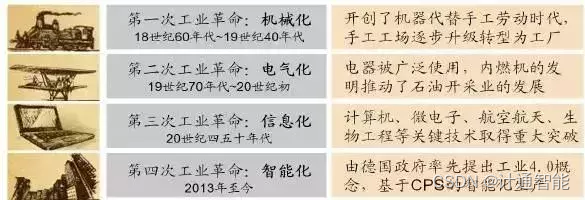 第一次工业革命：机械化
18世纪60年代~19世纪40年代
开创了机器代替手工劳动时代，
手工工场逐步升级转型为工厂
第二次工业革命：电气化
19世纪70年代~20世纪初
电器被广泛使用，内燃机的发
明推动了石油开采业的发展
第三次工业革命：信息化
20世纪四五十年代
计算机、微电子、航空航天、生
物工程等关键技术取得重大突破
第四次工业革命：智能化
2013年至今
由德国政府率先提出工业4.0概
念，基于CPS的智能化生产
CSDN @计通智能